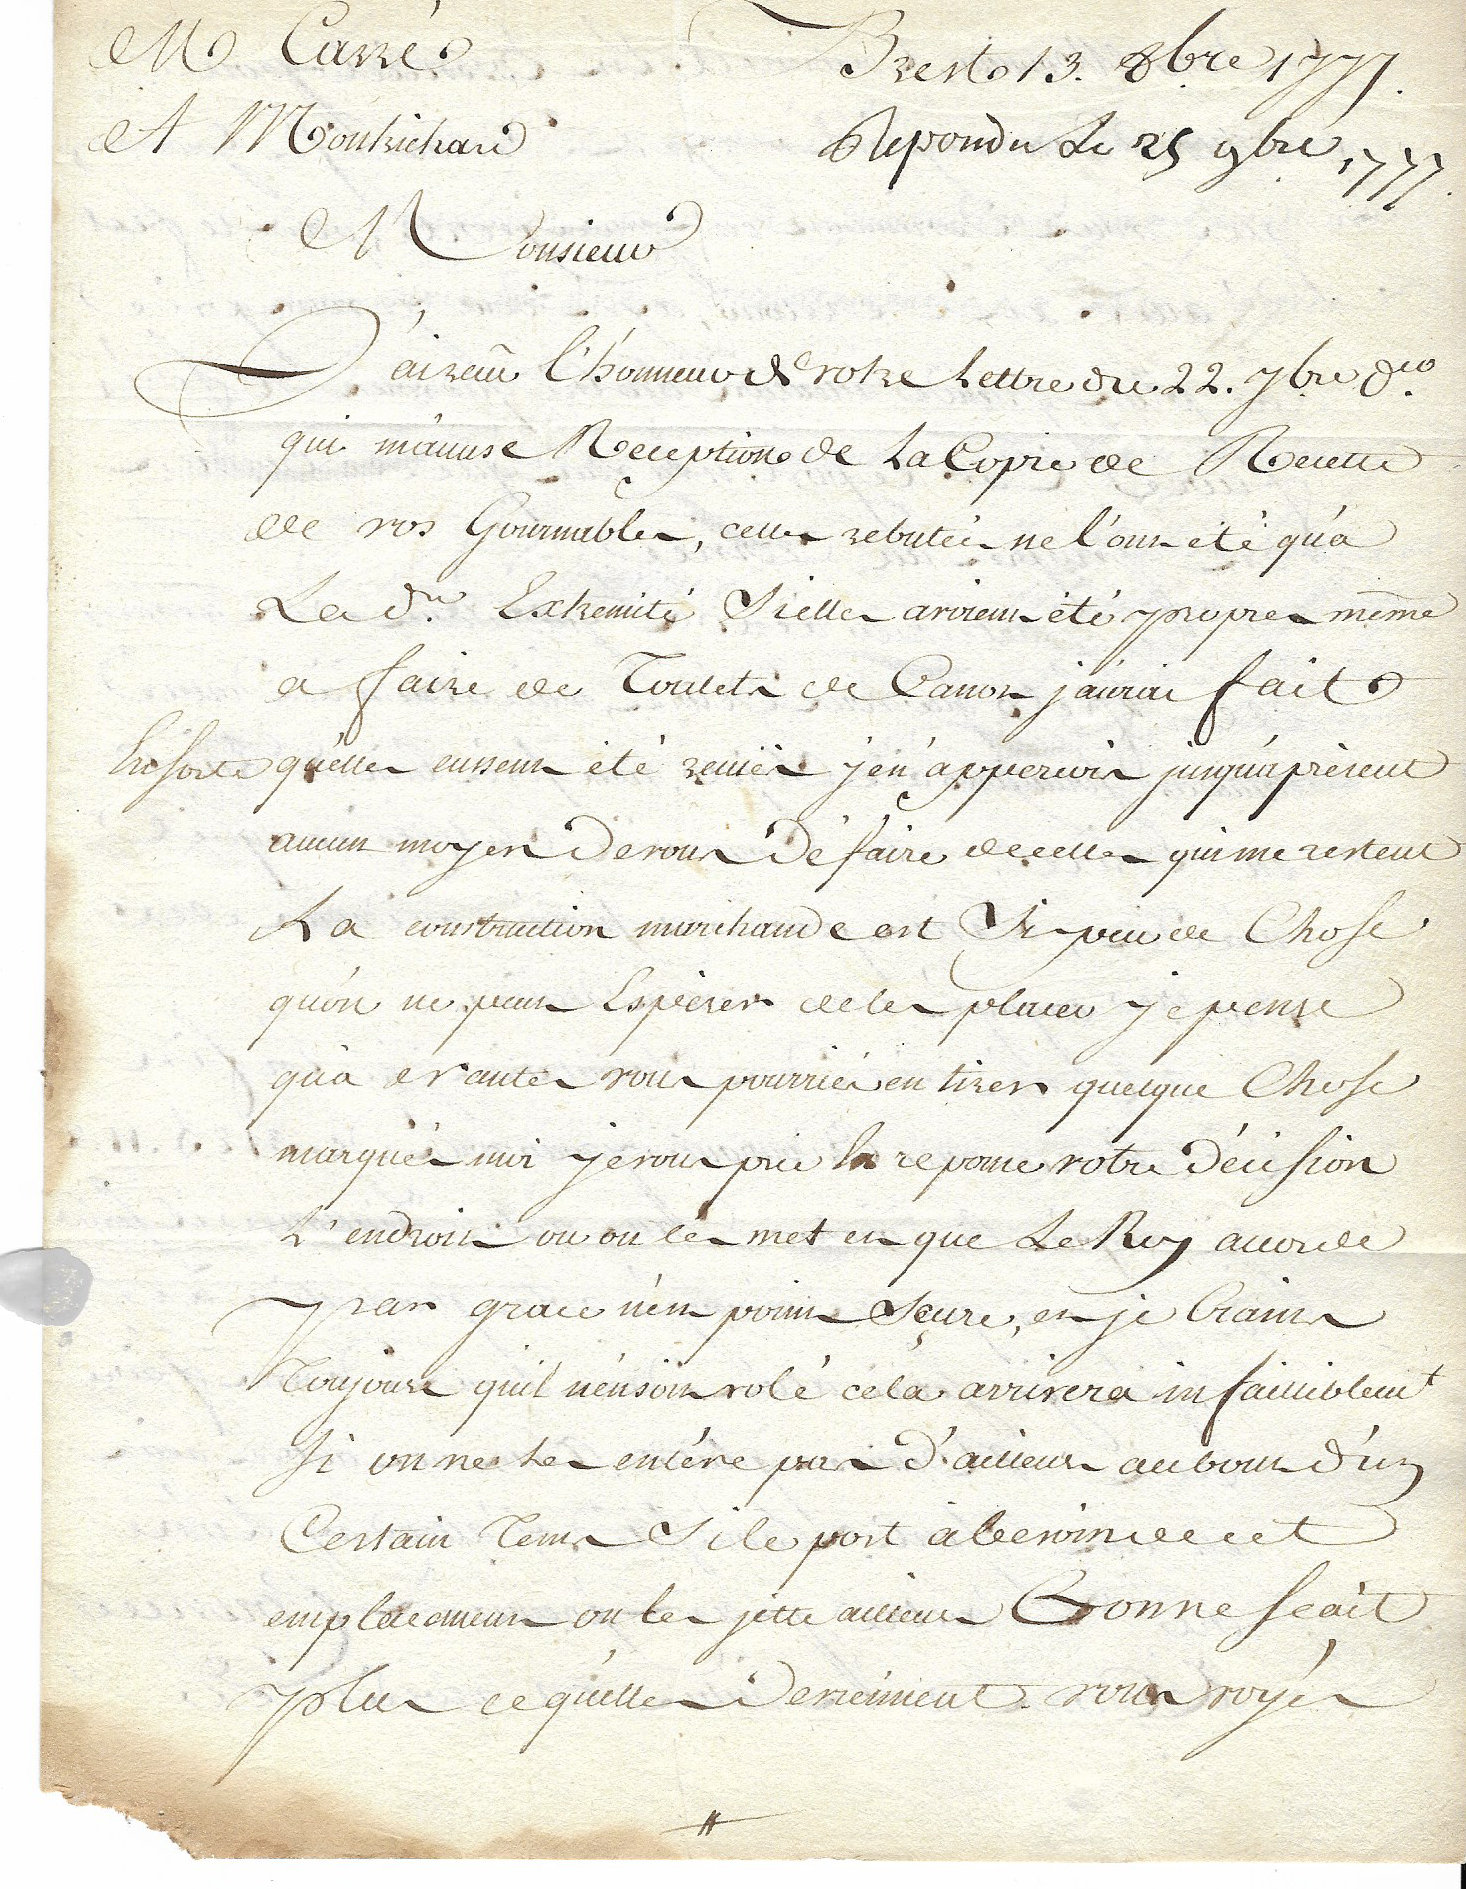 M Carré
A Montrichard
Brest 13. 8bre 1777.
Repondu Le 25 9bre 1777.
Monsieur
J'ai recu l'honneur de votre Lettre du 22. 7bre d.er
qui m'acuse Reception de La Copie de Recette
de vos Gournables, celles rebutées ne l'ont été qu'a
La d.re Extremité Si elles avoient été propres même
a faire de Toulets de Canon j'aurai fait
En sorte qu'elles eussent été recües je n'apperçois jusqu'apresent
aucun moyen de vous Défaire de celles qui me restent
La construction marchande est Si peu de Chose
qu'on ne peut Espérer de les placer je pense
qu'a Nantes vous pourriés en tirer quelque Chose
marqués moi je vous prie En reponce votre Décision
L'endroit ou on les met et que Le Roy accorde
par grace n'est point Seure, et je Crains
Toujours qu'il n'en soit volé cela arrivera infailliblemt
Si on ne Les enléve pas D'ailleurs au bout D'un
Certain Tems Si le port à besoin de cet
emplacement on les jette ailleurs Et on ne Scait
plus ce qu'elles Deviennent. vous voyés